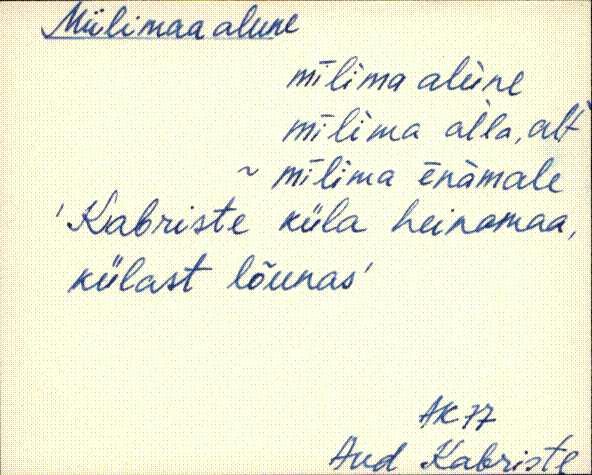 Miilimaa alune
mīlima alùne
mīlima àlla, alt
~ mīlima ēnämale
'Kabriste küla heinamaa,
külast lõunas'
AK 77
Aud Kabriste